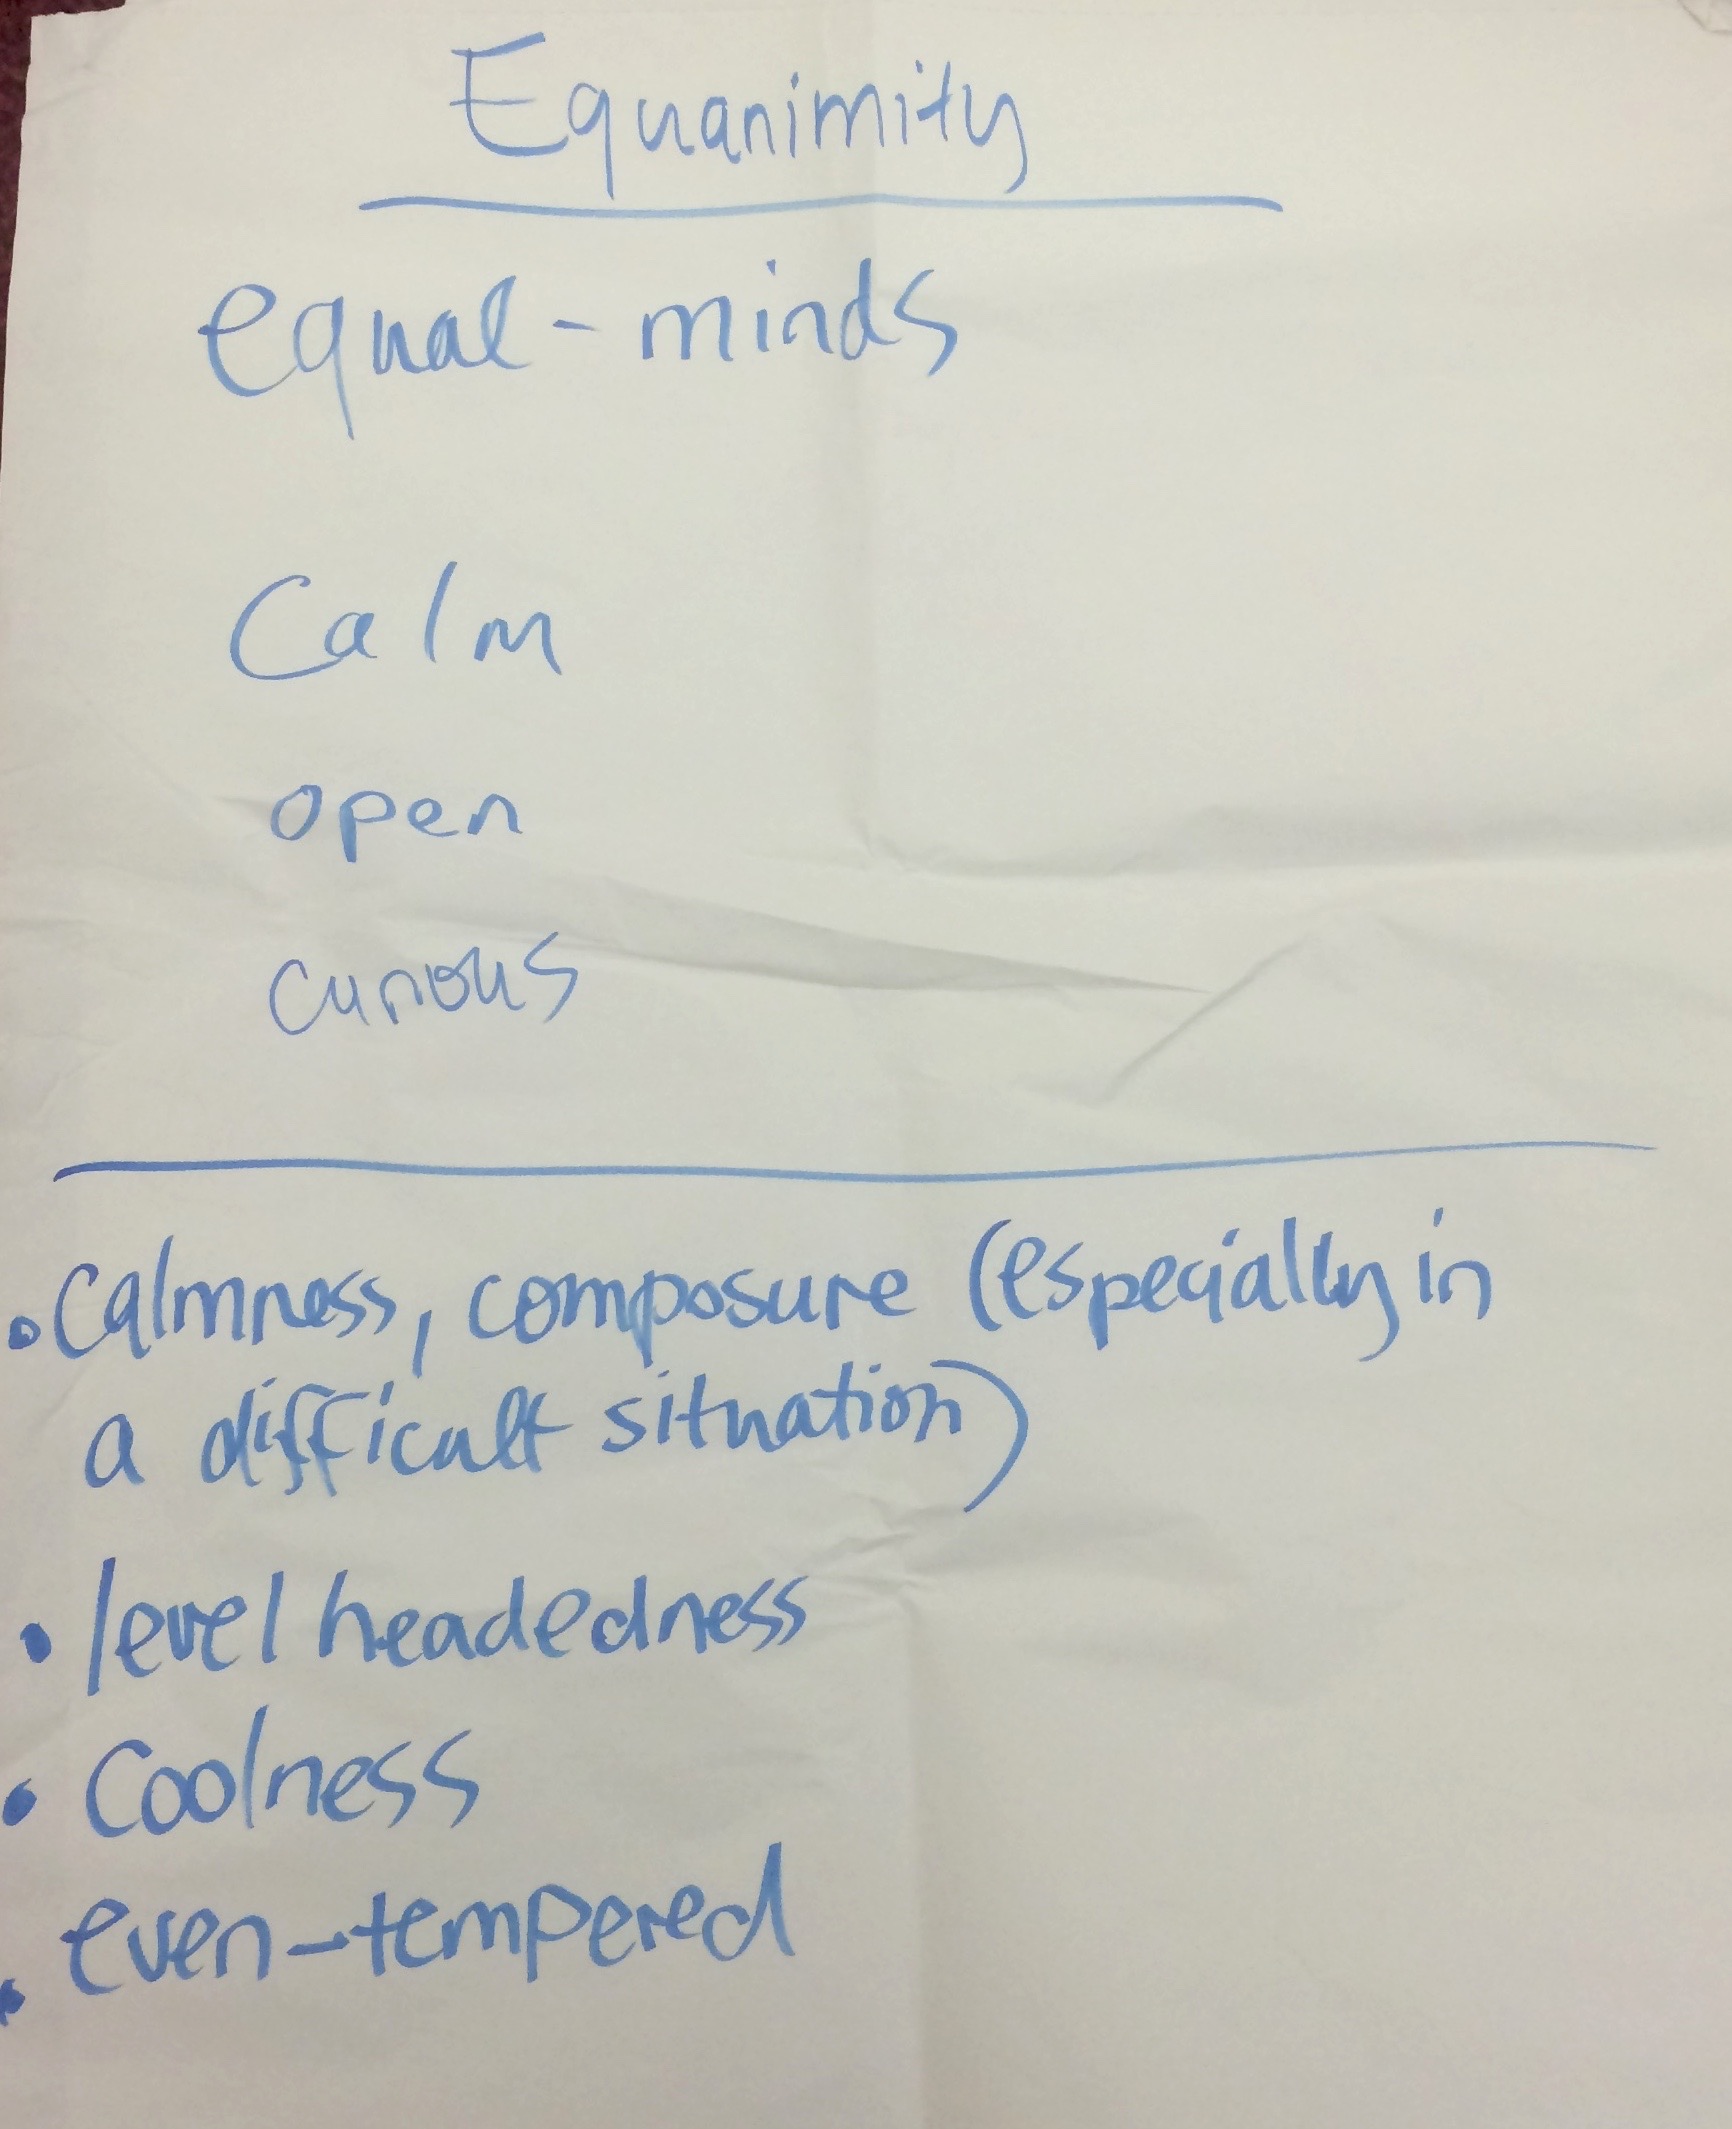 Equanimity
equal - minds
Calm
open
curious
• Calmness, composure (especially in
a difficult situation)
• level headedness
• Coolness
• even-tempered